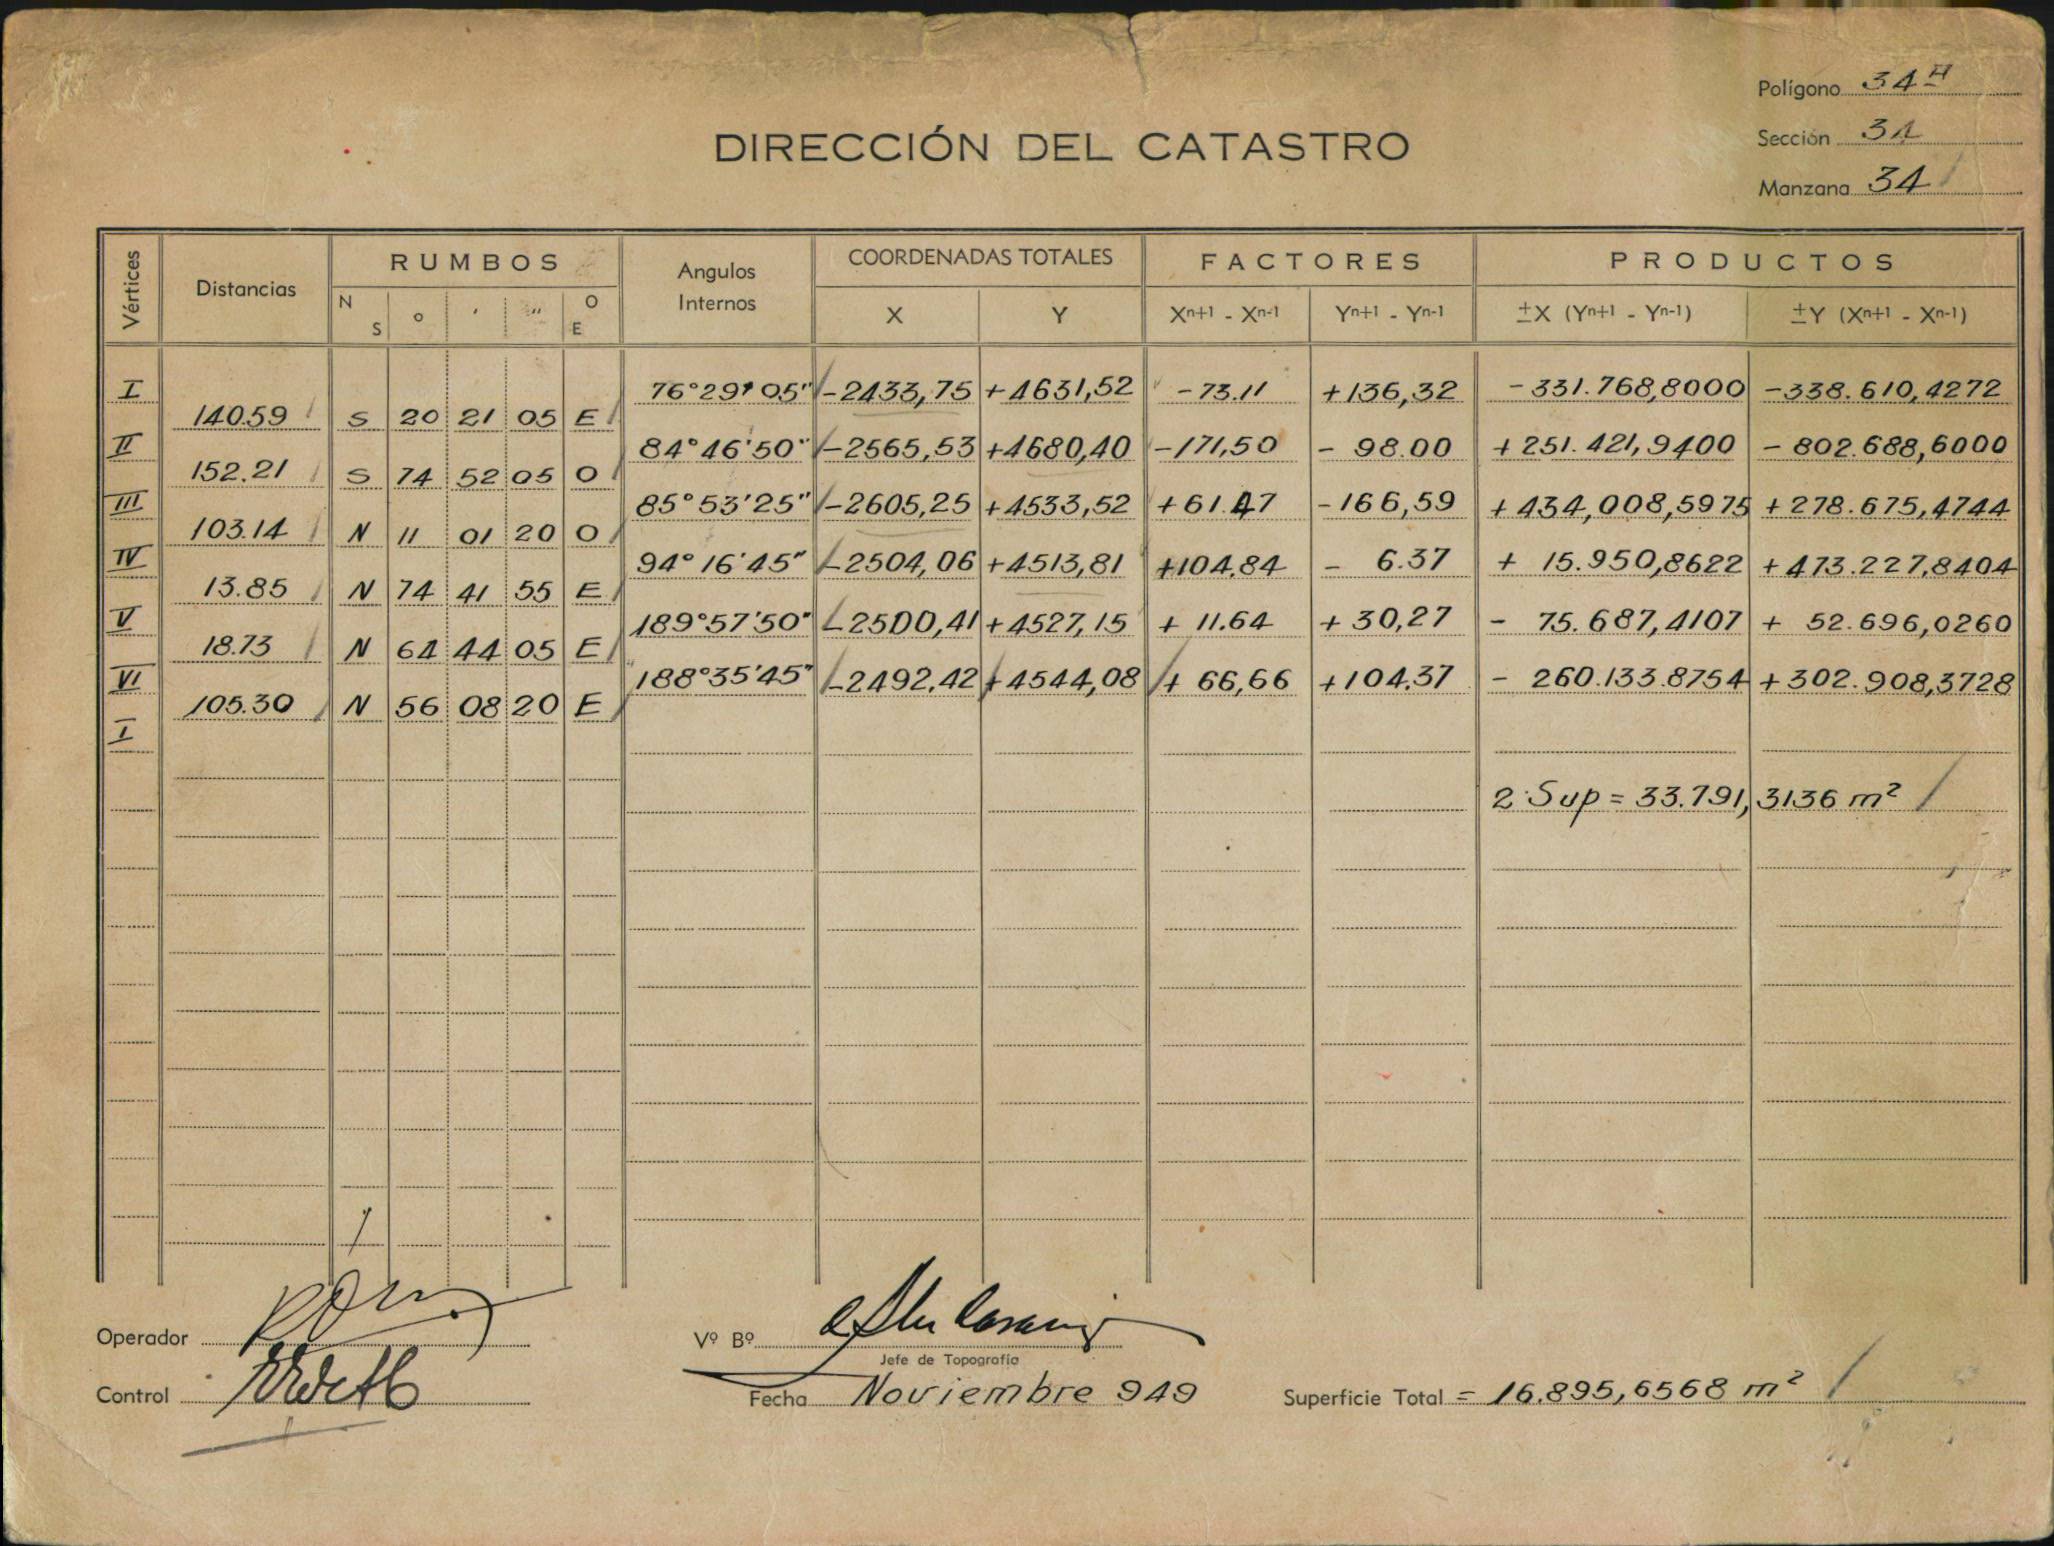 Polígono 34 A
DIRECCIÓN DEL CATASTRO
Sección 34
Manzana 34
Vértices Distancias RUMBOS Angulos Internos COORDENADAS TOTALES FACTORES PRODUCTOS
N S o ' " O E X Y Xn+1 - Xn-1 Yn+1 - Yn-1 ±X (Yn+1 - Yn-1) ±Y (Xn+1 - Xn-1)
I 76°29'05" -2433,75 +4631,52 -73.11 +136,32 -331.768,8000 -338.610,4272
140.59 S 20 21 05 E
II 84°46'50" -2565,53 +4680,40 -171,50 - 98.00 +251.421,9400 -802.688,6000
152.21 S 74 52 05 O
III 85°53'25" -2605,25 +4533,52 +61.47 -166,59 +434,008,5975 +278.675,4744
103.14 N 11 01 20 O
IV 94°16'45" -2504,06 +4513,81 +104.84 - 6.37 + 15.950,8622 +473.227,8404
13.85 N 74 41 55 E
V 189°57'50" -2500,41 +4527,15 + 11.64 + 30,27 - 75.687,4107 + 52.696,0260
18.73 N 64 44 05 E
VI 188°35'45" -2492.42 +4544,08 + 66,66 +104.37 - 260.133.8754 +302.908,3728
105.30 N 56 08 20 E
I
2 Sup = 33.791,3136 m²
Operador
Vº Bº
Jefe de Topografía
Control
Fecha Noviembre 949
Superficie Total = 16.895,6568 m²